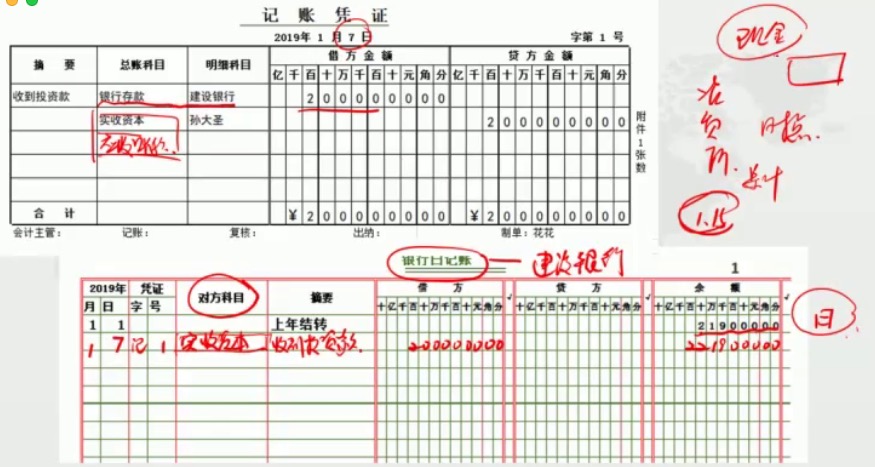 记 账 凭 证
2019年 1 月 7 日 字第 1 号
摘 要 总账科目 明细科目 借方金额 贷方金额
亿千百十万千百十元角分 亿千百十万千百十元角分
收到投资款 银行存款 建设银行 200000000
实收资本 孙大圣 200000000
合 计 ¥200000000 ¥200000000
附件1张数
会计主管: 记账: 复核: 出纳: 制单:花花
现金
日
1.15
银行日记账 建设银行 1
2019年 凭证 对方科目 摘要 借 方 贷 方 余 额
月 日 字 号 十亿千百十万千百十元角分 √ 十亿千百十万千百十元角分 √ 十亿千百十万千百十元角分 √
1 1 上年结转 21900000
1 7 记 1 实收资本 收到投资款 200000000 221900000
日